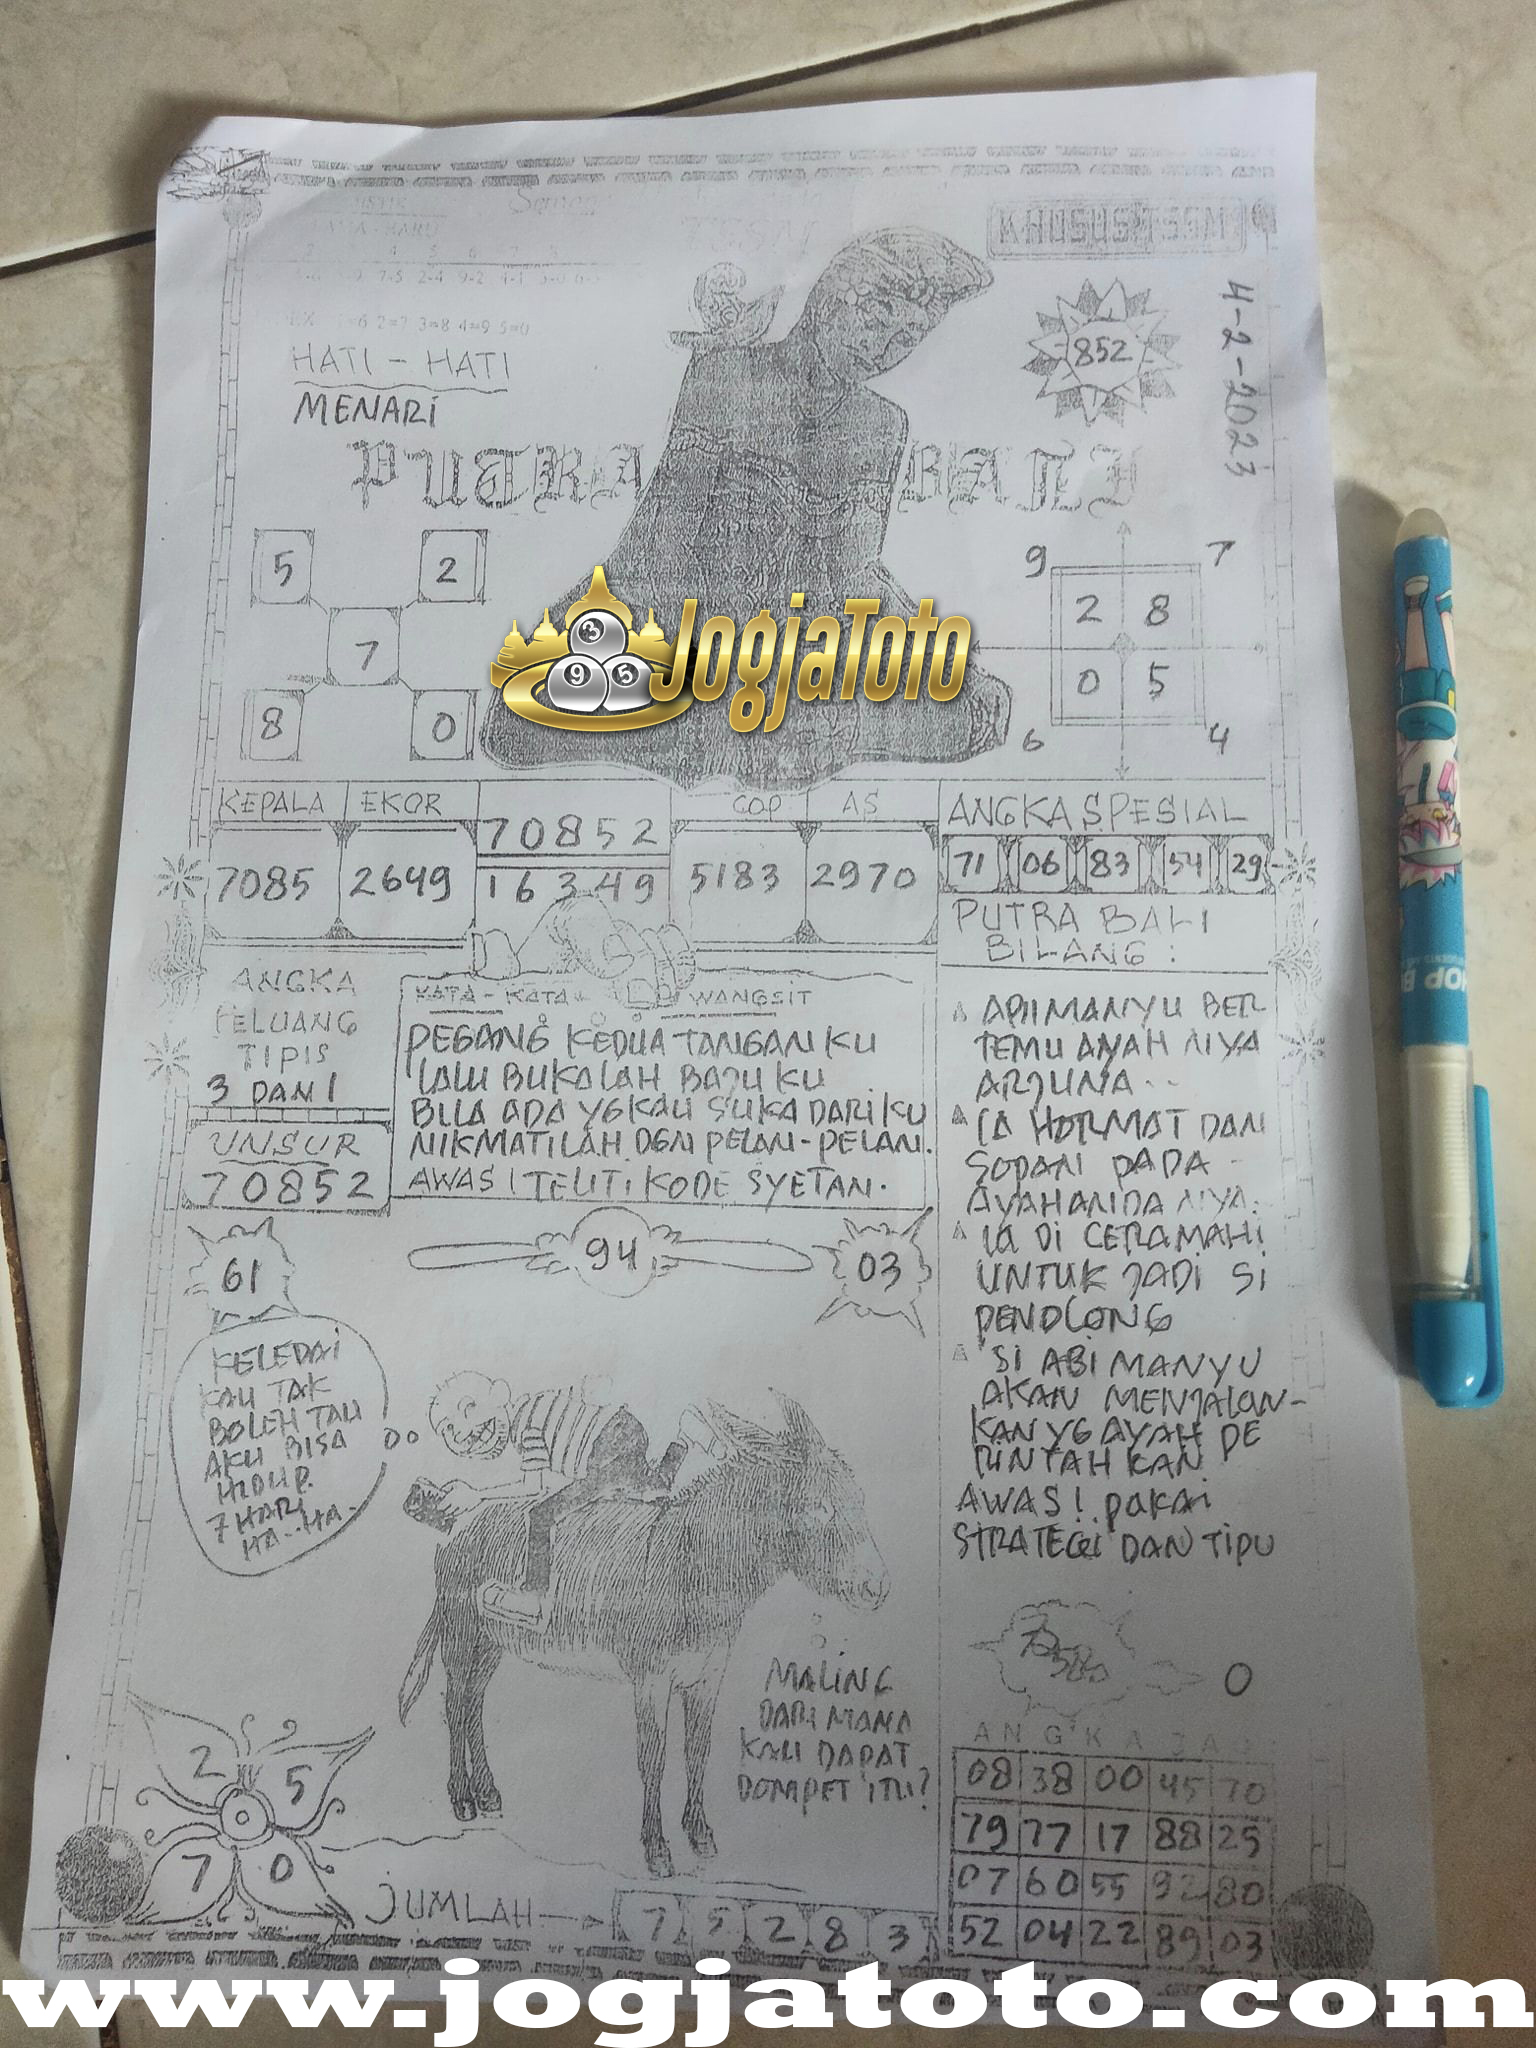 KHUSUS TSSM
4-2-2023
7-5 2-4 9-2 4-1
1=6 2=7 3=8 4=9 5=0
HATI - HATI
MENARI
852
PUTRA BALI
5 2
7
8 0
9 7
2 8
0 5
6 4
3
9 5
JogjaToto
KEPALA EKOR
7085 2649
70852
16349
COP AS
5183 2970
ANGKA SPESIAL
71 06 83 54 29
PUTRA BALI
BILANG :
ANGKA
PELUANG
TIPIS
3 DAN 1
UNSUR
70852
KATA - KATA WANGSIT
PEGANG KEDUA TANGANKU
LALU BUKALAH BAJUKU
BILA ADA YG KAU SUKA DARIKU
NIKMATILAH DGN PELAN-PELAN.
AWAS! TELITI KODE SYETAN.
61 94 03
ABIMANYU BER
TEMU AYAH NIYA
ARJUNA..
IA HORMAT DAN
SOPAN PADA
AYAHANDA NIYA.
IA DI CERAMAHI
UNTUK JADI SI
PENOLONG
SI ABIMANYU
AKAN MENJALAN-
KAN YG AYAH PE
RINTAH KAN
AWAS! PAKAI
STRATEGI DAN TIPU
KELEDAI
KAU TAK
BOLEH TAU
AKU BISA
HIDUP.
7 HARI
HA..HA.
MALING
DARI MANA
KAU DAPAT
DOMPET ITU?
0
ANGKA JADI
08 38 00 45 70
79 77 17 88 25
07 60 55 92 80
52 04 22 89 03
2 5
7 0
JUMLAH
7 5 2 8 3
www.jogjatoto.com